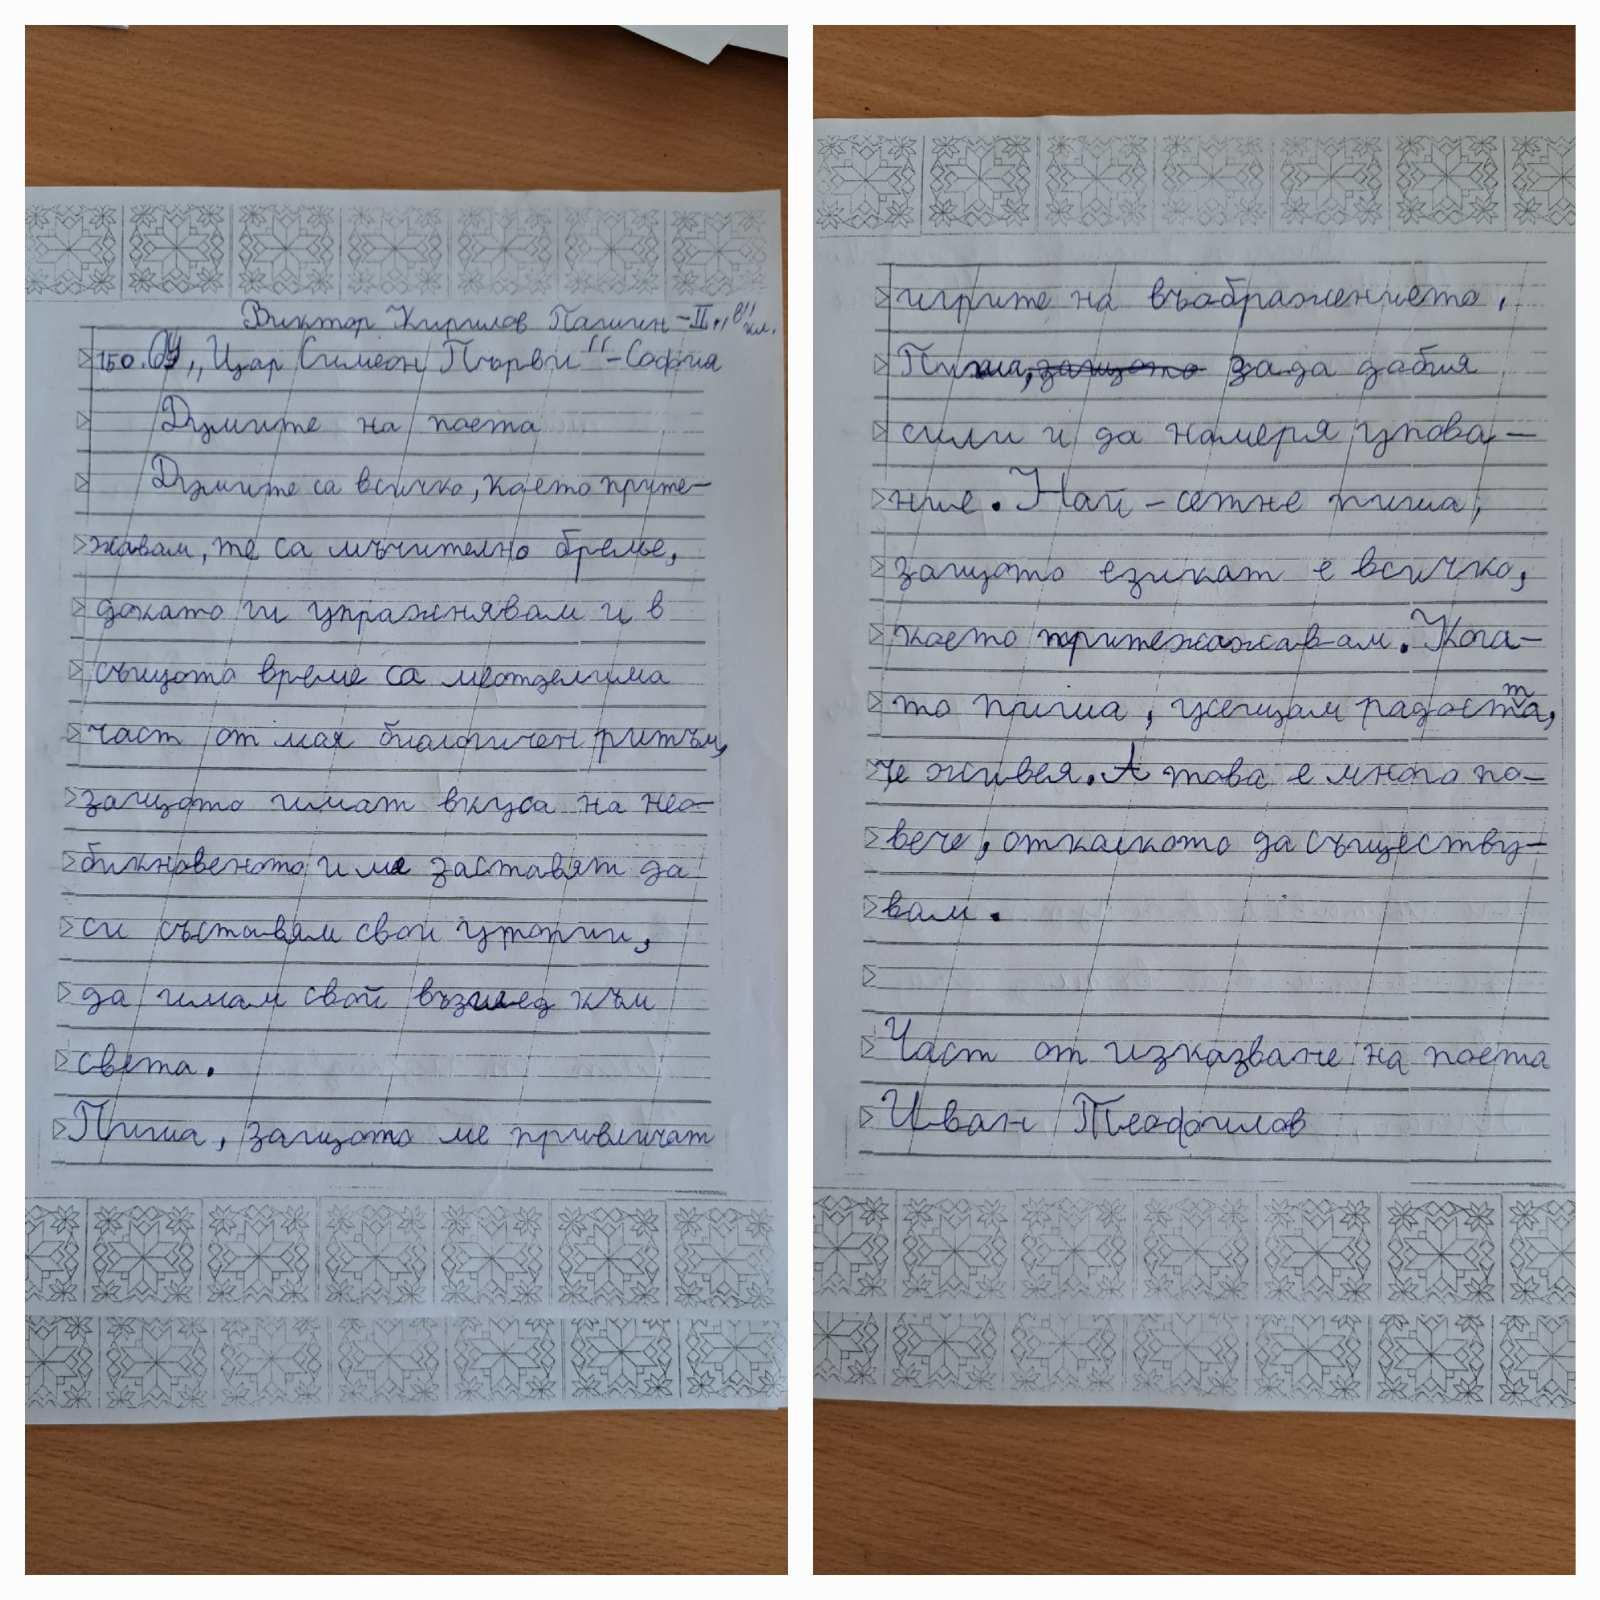 Виктор Кирилов Пашин - II "в" кл.
150. ОУ "Цар Симеон Първи" - София
Думите на поета
Думите са всичко, което прите-
жавам, те са мъчително бреме,
докато ги упражнявам и в
същото време са неотделима
част от моя биологичен ритъм,
защото имат вкуса на нео-
бикновеното и ме заставят да
си съставям свои утопии,
да имам свой възглед към
света.
Пиша, защото ме привличат
игрите на въображението.
Пиша, защото за да добия
сили и да намеря упова-
ние. Най-сетне пиша,
защото езикът е всичко,
което притежажавам. Кога-
то пиша, усещам радостта,
че живея. А това е много по-
вече, отколкото да съществу-
вам.
Част от изказване на поета
Иван Теофилов